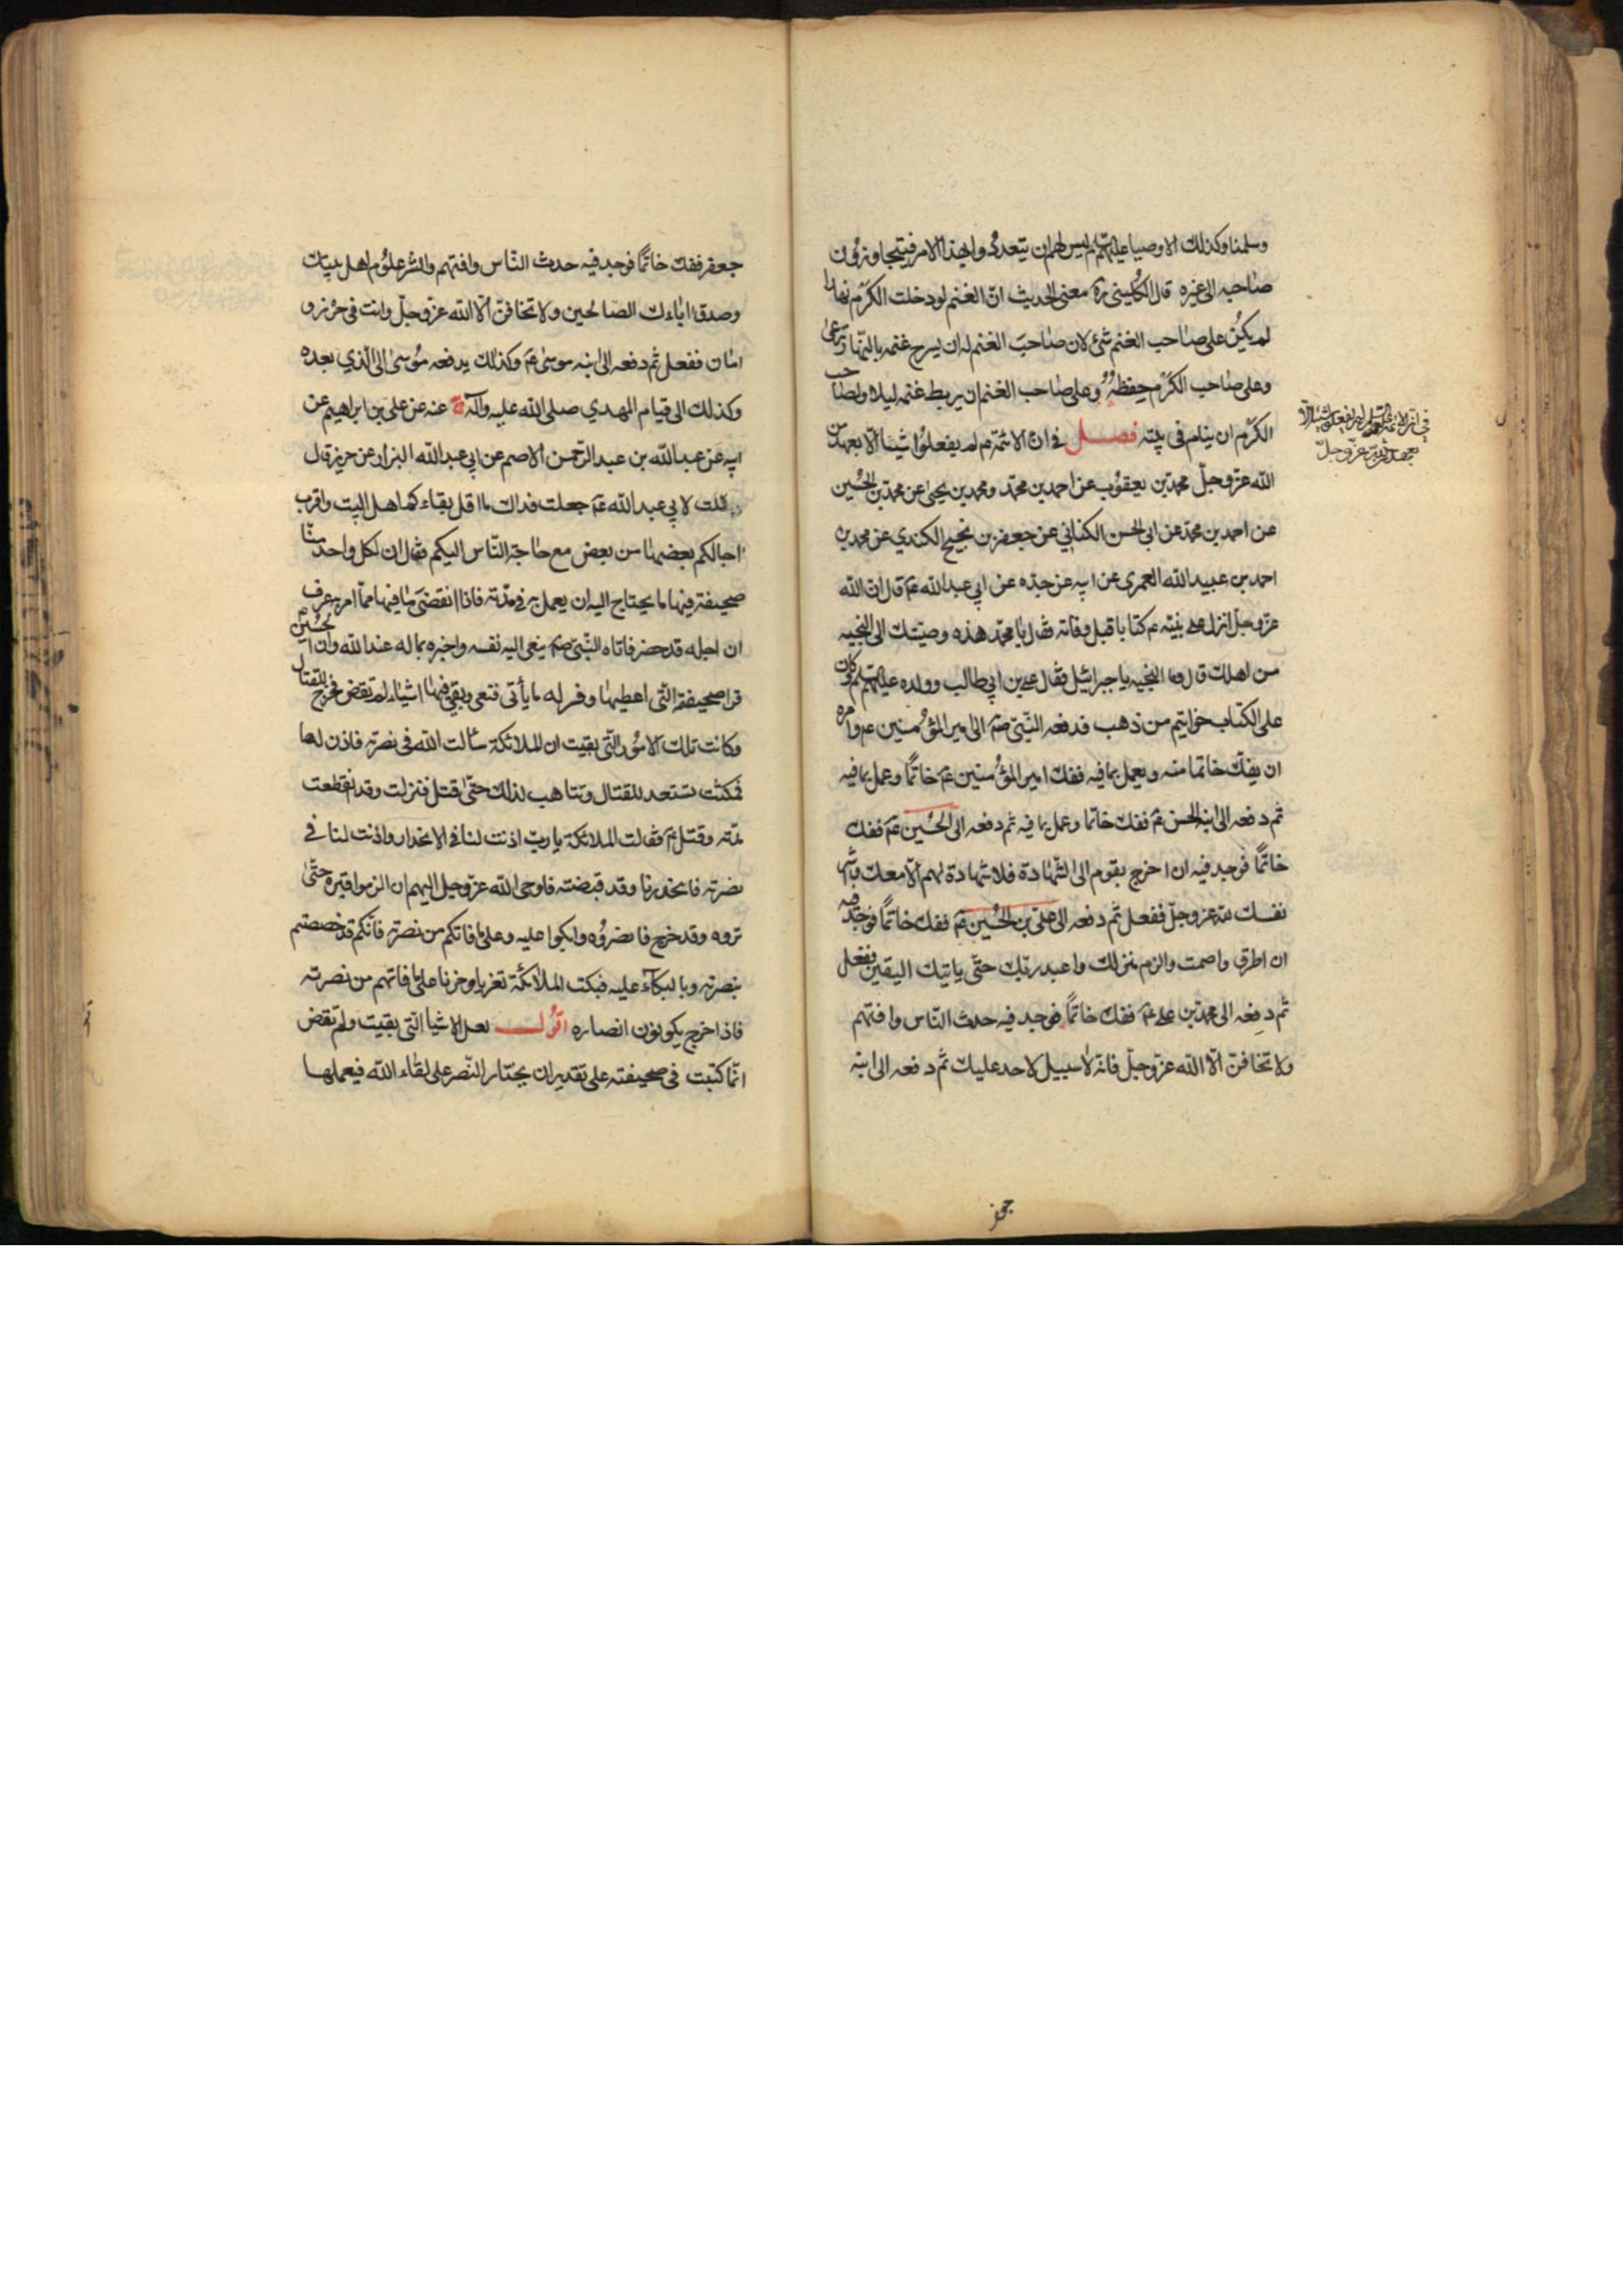 وسلمنا وكذلك الاوصيا عليهم السلم ليس لهم ان يتعدوا بهذا الامر فيتجاوزون
صاحبه الى غيره قال الكليني ره معنى الحديث ان الغنم لو دخلت الكرم نهارا
لم يكن على صاحب الغنم شئ لان صاحب الغنم له ان يسرح غنمه بالنهار ترعى
وعلى صاحب الكرم حفظه وعلى صاحب الغنم ان يربط غنمه ليلا ولصاحب
الكرم ان ينام فى بيته فصل فى ان الائمة ع لم يفعلوا شيئا الا بعهد من
الله عزوجل محمد بن يعقوب عن احمد بن محمد ومحمد بن يحيى عن محمد بن الحسين
عن احمد بن محمد عن ابى الحسن الكنانى عن جعفر بن نجيح الكندي عن محمد بن
احمد بن عبيد الله العمرى عن ابيه عن جده عن ابى عبد الله ع قال ان الله
عزوجل انزل على نبيه ع كتابا قبل وفاته فقال يا محمد هذه وصيتك الى النجبه
من اهلك قال وما النجبه يا جبرائيل فقال على بن ابى طالب وولده عليهم السلم وكان
على الكتاب خواتيم من ذهب فدفعه النبى ص الى امير المؤمنين ع وامره
ان يفك خاتما منه ويعمل بما فيه ففك امير المؤمنين ع خاتما وعمل بما فيه
ثم دفعه الى ابنه الحسن ع ففك خاتما وعمل بما فيه ثم دفعه الى الحسين ع ففك
خاتما فوجد فيه ان اخرج بقوم الى الشهادة فلا شهادة لهم الا معك واشر
نفسك لله عزوجل ففعل ثم دفعه الى على بن الحسين ع ففك خاتما فوجد فيه
ان اطرق واصمت والزم منزلك واعبد ربك حتى ياتيك اليقين ففعل
ثم دفعه الى محمد بن على ع ففك خاتما فوجد فيه حدث الناس وافتهم
ولا تخافن الا الله عزوجل فانه لا سبيل لاحد عليك ثم دفعه الى ابنه
جعفر
فى ان الائمة عليهم السلم لم يفعلوا شيئا الا
بعهد من الله عزوجل
جعفر ففك خاتما فوجد فيه حدث الناس وافتهم وانشر علوم اهل بيتك
وصدق اباءك الصالحين ولا تخافن الا الله عزوجل وانت فى حرز و
امان ففعل ثم دفعه الى ابنه موسى ع وكذلك يدفعه موسى الى الذي بعده
وكذلك الى قيام المهدي صلى الله عليه وآله عنه عن على بن ابراهيم عن
ابيه عن عبد الله بن عبد الرحمن الاصم عن ابى عبد الله البزاز عن حريز قال
قلت لابى عبد الله ع جعلت فداك ما اقل بقاءكم اهل البيت واقرب
اجالكم بعضها من بعض مع حاجة الناس اليكم فقال ان لكل واحد منا
صحيفة فيها ما يحتاج اليه ان يعمل به فى مدته فاذا انقضى ما فيها مما امر به عرف
ان اجله قد حضر فاتاه النبى ص ينعى اليه نفسه واخبره بما له عند الله وان الحسين ع
قرا صحيفته التى اعطيها وفسر له ما يأتى بنعى وبقى فيها اشياء لم تقض فخرج للقتال
وكانت تلك الامور التى بقيت ان الملائكة سألت الله فى نصرته فاذن لها
فمكثت تستعد للقتال وتتاهب لذلك حتى قتل فنزلت وقد انقطعت
مدته وقتل ع فقالت الملائكة يا رب اذنت لنا فى الانحدار واذنت لنا فى
نصرته فانحدرنا وقد قبضته فاوحى الله عزوجل اليهم ان الزموا قبره حتى
تروه وقد خرج فانصروه وابكوا عليه وعلى ما فاتكم من نصرته فانكم قد خصصتم
بنصرته وبالبكاء عليه فبكت الملائكة تعزيا وحزنا على ما فاتهم من نصرته
فاذا خرج يكونون انصاره اقول لعل الاشيا التى بقيت ولم تقض
انما كتبت فى صحيفته على تقدير ان يختار النصر على لقاء الله فيعملها